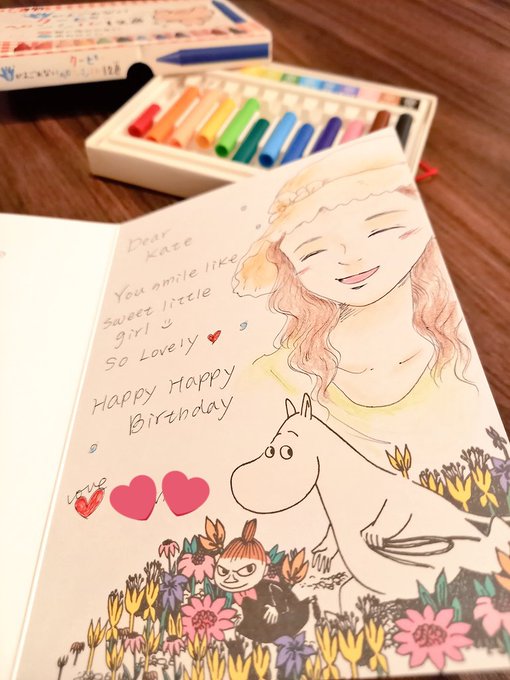 Dear
Kate
You smile like
sweet little
girl
So Lovely
Happy Happy
Birthday
Love